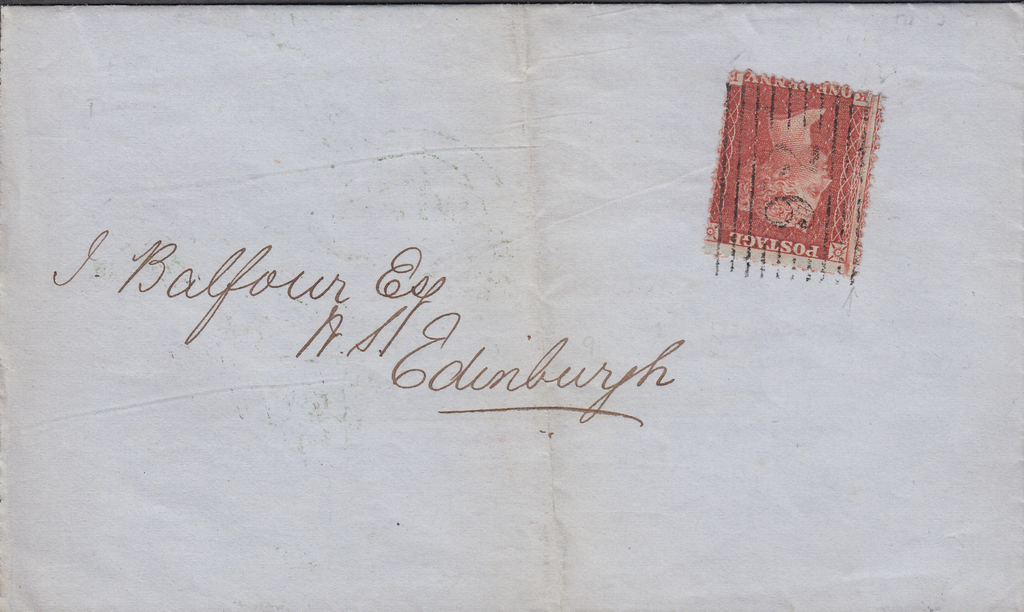 J. Balfour Esq
W.S.
Edinburgh
POSTAGE
ONE PENNY